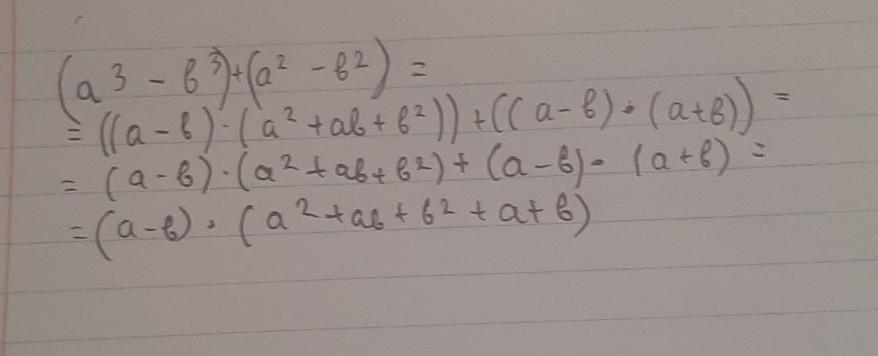 (a³ - b³)+(a² - b²) =
= ((a - b) · (a² + ab + b²)) + ((a - b) · (a+b)) =
= (a - b) · (a² + ab + b²) + (a - b) · (a + b) =
= (a - b) · (a² + ab + b² + a + b)